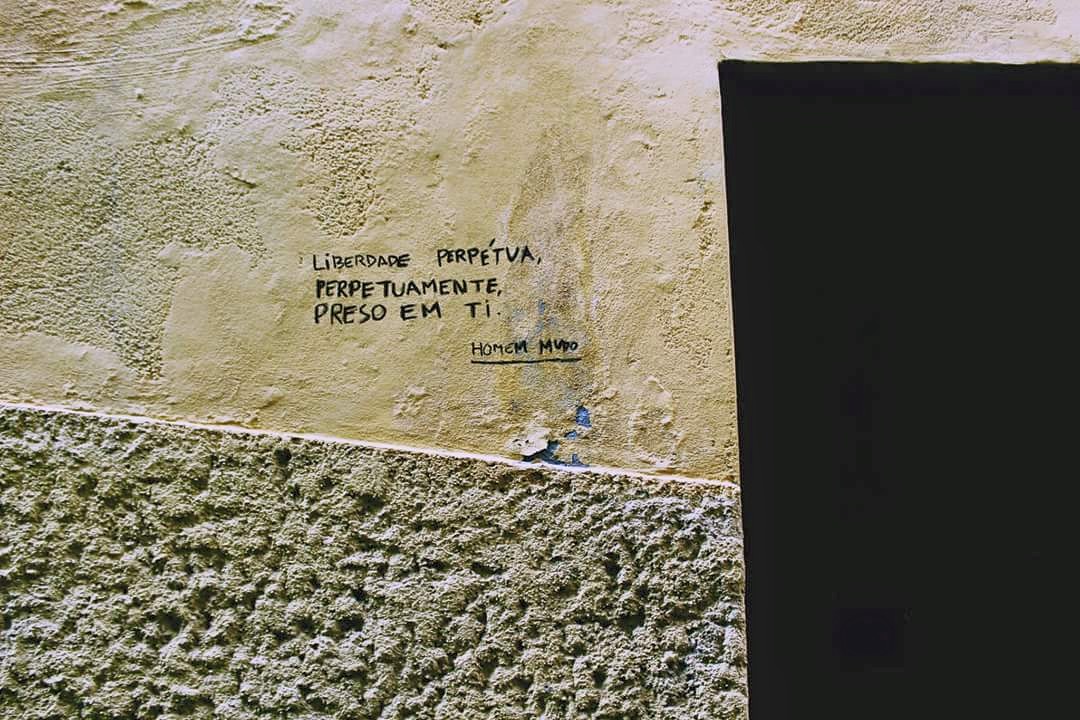 LiBERDADE PERPÉTUA,
PERPETUAMENTE,
PRESO EM Ti.
HOMEM MUDO